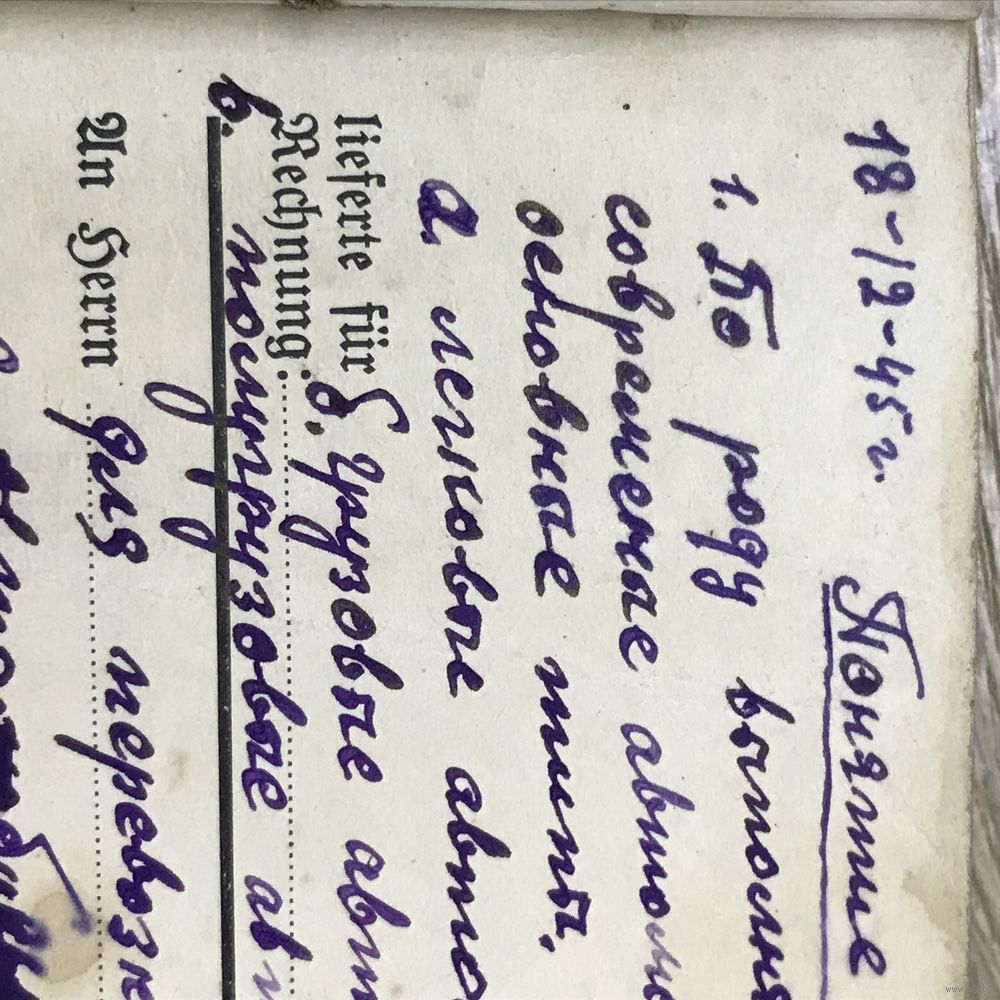 18-12-45 г. Понятие
1. По роду выполня
современые автомо
основные типы.
а. легковые авто
lieferte für б. грузовые авт
Rechnung:
в. полугрузовые ав
An Herrn для перевозк